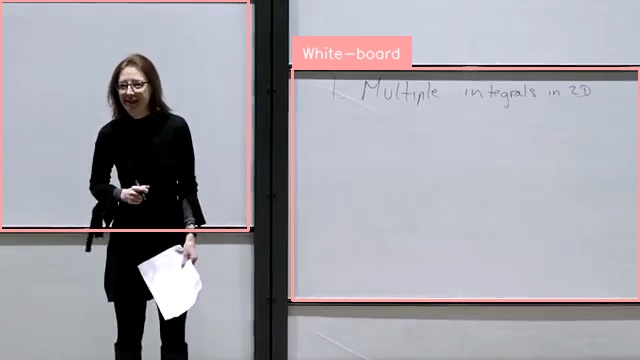 White-board
1. Multiple integrals in 2D